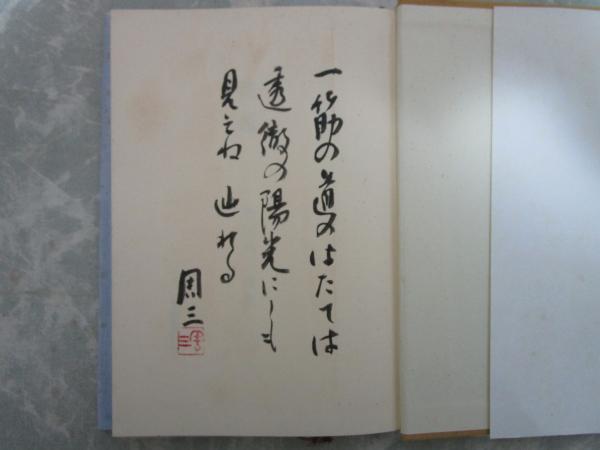 一筋の道のはたては
透徹の陽光にしも
見えね 辿れる
周三